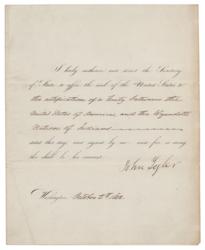 I hereby authorize and direct the Secretary
of State to affix the seal of the United States to
the ratification of a Treaty between the
United States of America, and the Wyandott
Nation of Indians
dated this day, and signed by me: and for so doing
this shall be his warrant.
John Tyler
Washington October